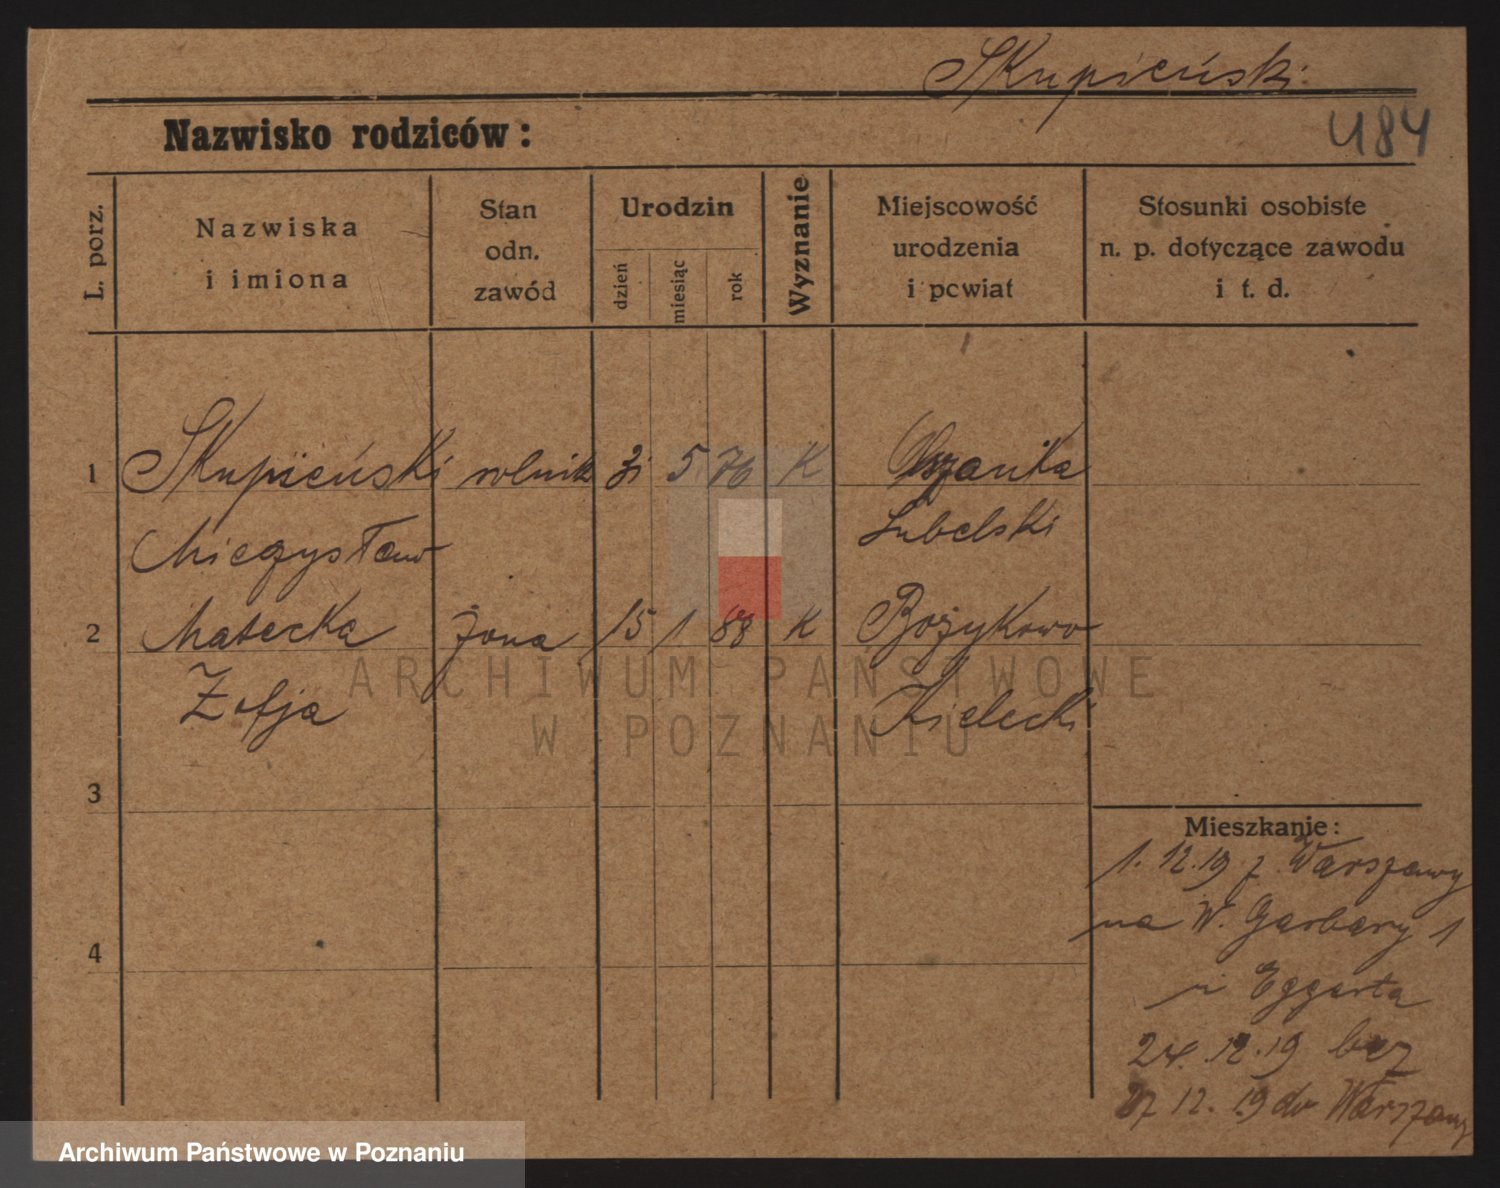 Skupieński
Nazwisko rodziców:
484
L. porz.
Nazwiska
i imiona
Stan
odn.
zawód
Urodzin
dzień
miesiąc
rok
Wyznanie
Miejscowość
urodzenia
i powiat
Stosunki osobiste
n. p. dotyczące zawodu
i t. d.
1 Skupieński rolnik 31 5 76 K
Mieczysław Lubelski
2 Małecka żona 15 1 88 K Bożykowo
Zofja Kielecki
3
4
Mieszkanie:
1. 12. 19 z Warszawy
na W. Garbary 1
u Eggerta
24. 12. 19
27 12. 19 do Warszawy
ARCHIWUM PAŃSTWOWE
W POZNANIU
Archiwum Państwowe w Poznaniu